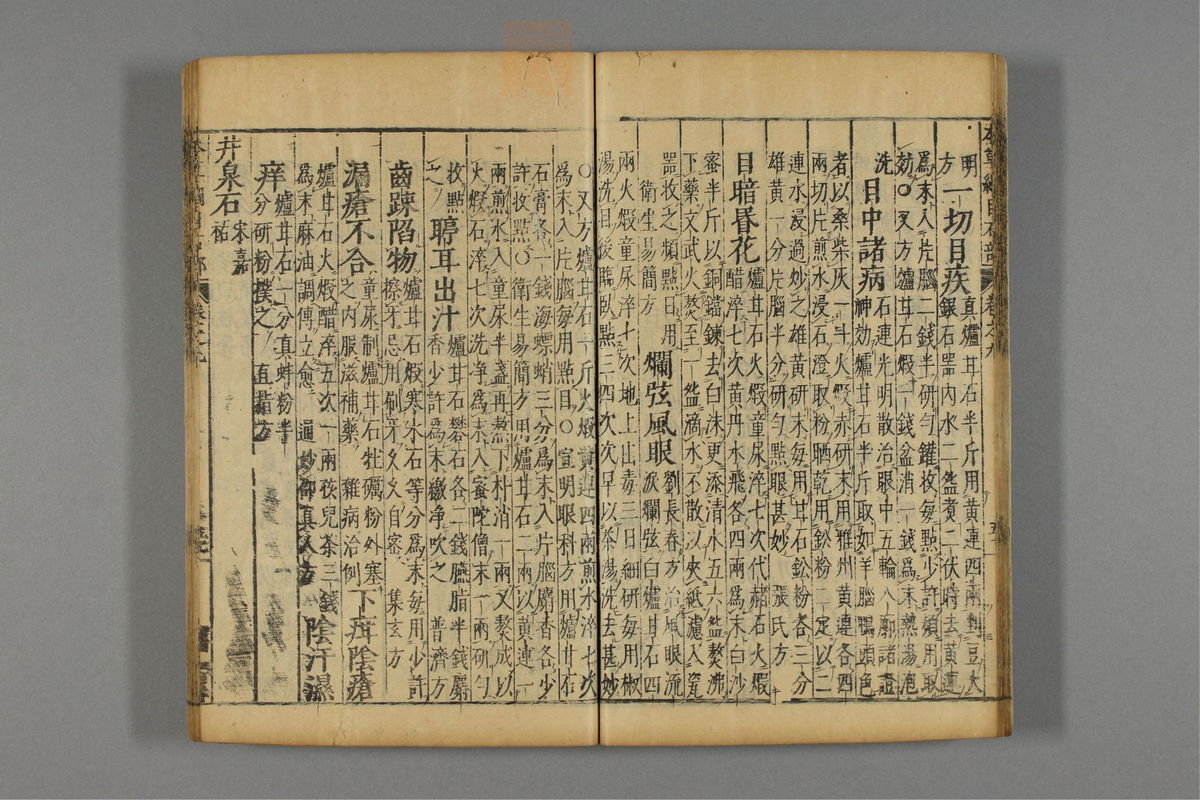 明
方
一切目疾
真爐甘石半斤用黃連四兩剉豆大
銀石器內水二盌煮二伏時去黃連
為末入片腦二錢半研勻罐收每點少許頻用取
効○又方爐甘石煅一錢盆消一錢為末熱湯泡
洗
目中諸病
石連光明散治眼中五輪八廓諸證
神効爐甘石半斤取如羊腦鴨頭色
者以桑柴灰一斗火煅赤研末用雅州黃連各四
兩切片煎水浸石澄取粉晒乾用鈆粉二定以二
連水浸過炒之雄黃研末每用甘石鈆粉各三分
雄黃一分片腦半分研勻點眼甚妙
張氏方
目暗昬花
爐甘石火煅童尿淬七次代赭石火煅
醋淬七次黃丹水飛各四兩為末白沙
蜜半斤以銅鐺鍊去白沫更添清水五六盌熬沸
下藥文武火熬至一盌滴水不散以夾紙濾入瓷
器收之頻點日用
衛生易簡方
爛弦風眼
劉長春方治風眼流
淚爛弦白爐甘石四
兩火煅童尿淬七次地上出毒三日細研每用椒
湯洗目後臨臥點三四次次早以茶湯洗去甚妙
○又方爐甘石一斤火煅黃連四兩煎水淬七次
為末入片腦每用點目○宣明眼科方用爐甘石
石膏各一錢海螵蛸三分為末入片腦麝香各少
許收點○衛生易簡方用爐甘石二兩以黃連一
兩煎水入童尿半盞再熬下朴消一兩又熬成以
火煅石淬七次洗淨為末入蜜陀僧末一兩研勻
收點
之
聤耳出汁
爐甘石礬石各二錢臙脂半錢麝
香少許為末繳淨吹之
普濟方
齒踈陷物
爐甘石煅寒水石等分為末每用少許
擦牙忌用刷牙久久自密
集玄方
漏瘡不合
童尿制爐甘石牡礪粉外塞
之內服滋補藥
雜病治例
下疳陰瘡
爐甘石火煅醋淬五次一兩孩兒茶三錢
為末麻油調傅立愈
通妙邵真人方
陰汗濕
痒
爐甘石一分真蚌粉半
分研粉撲之
直指方
井泉石
宋嘉
祐